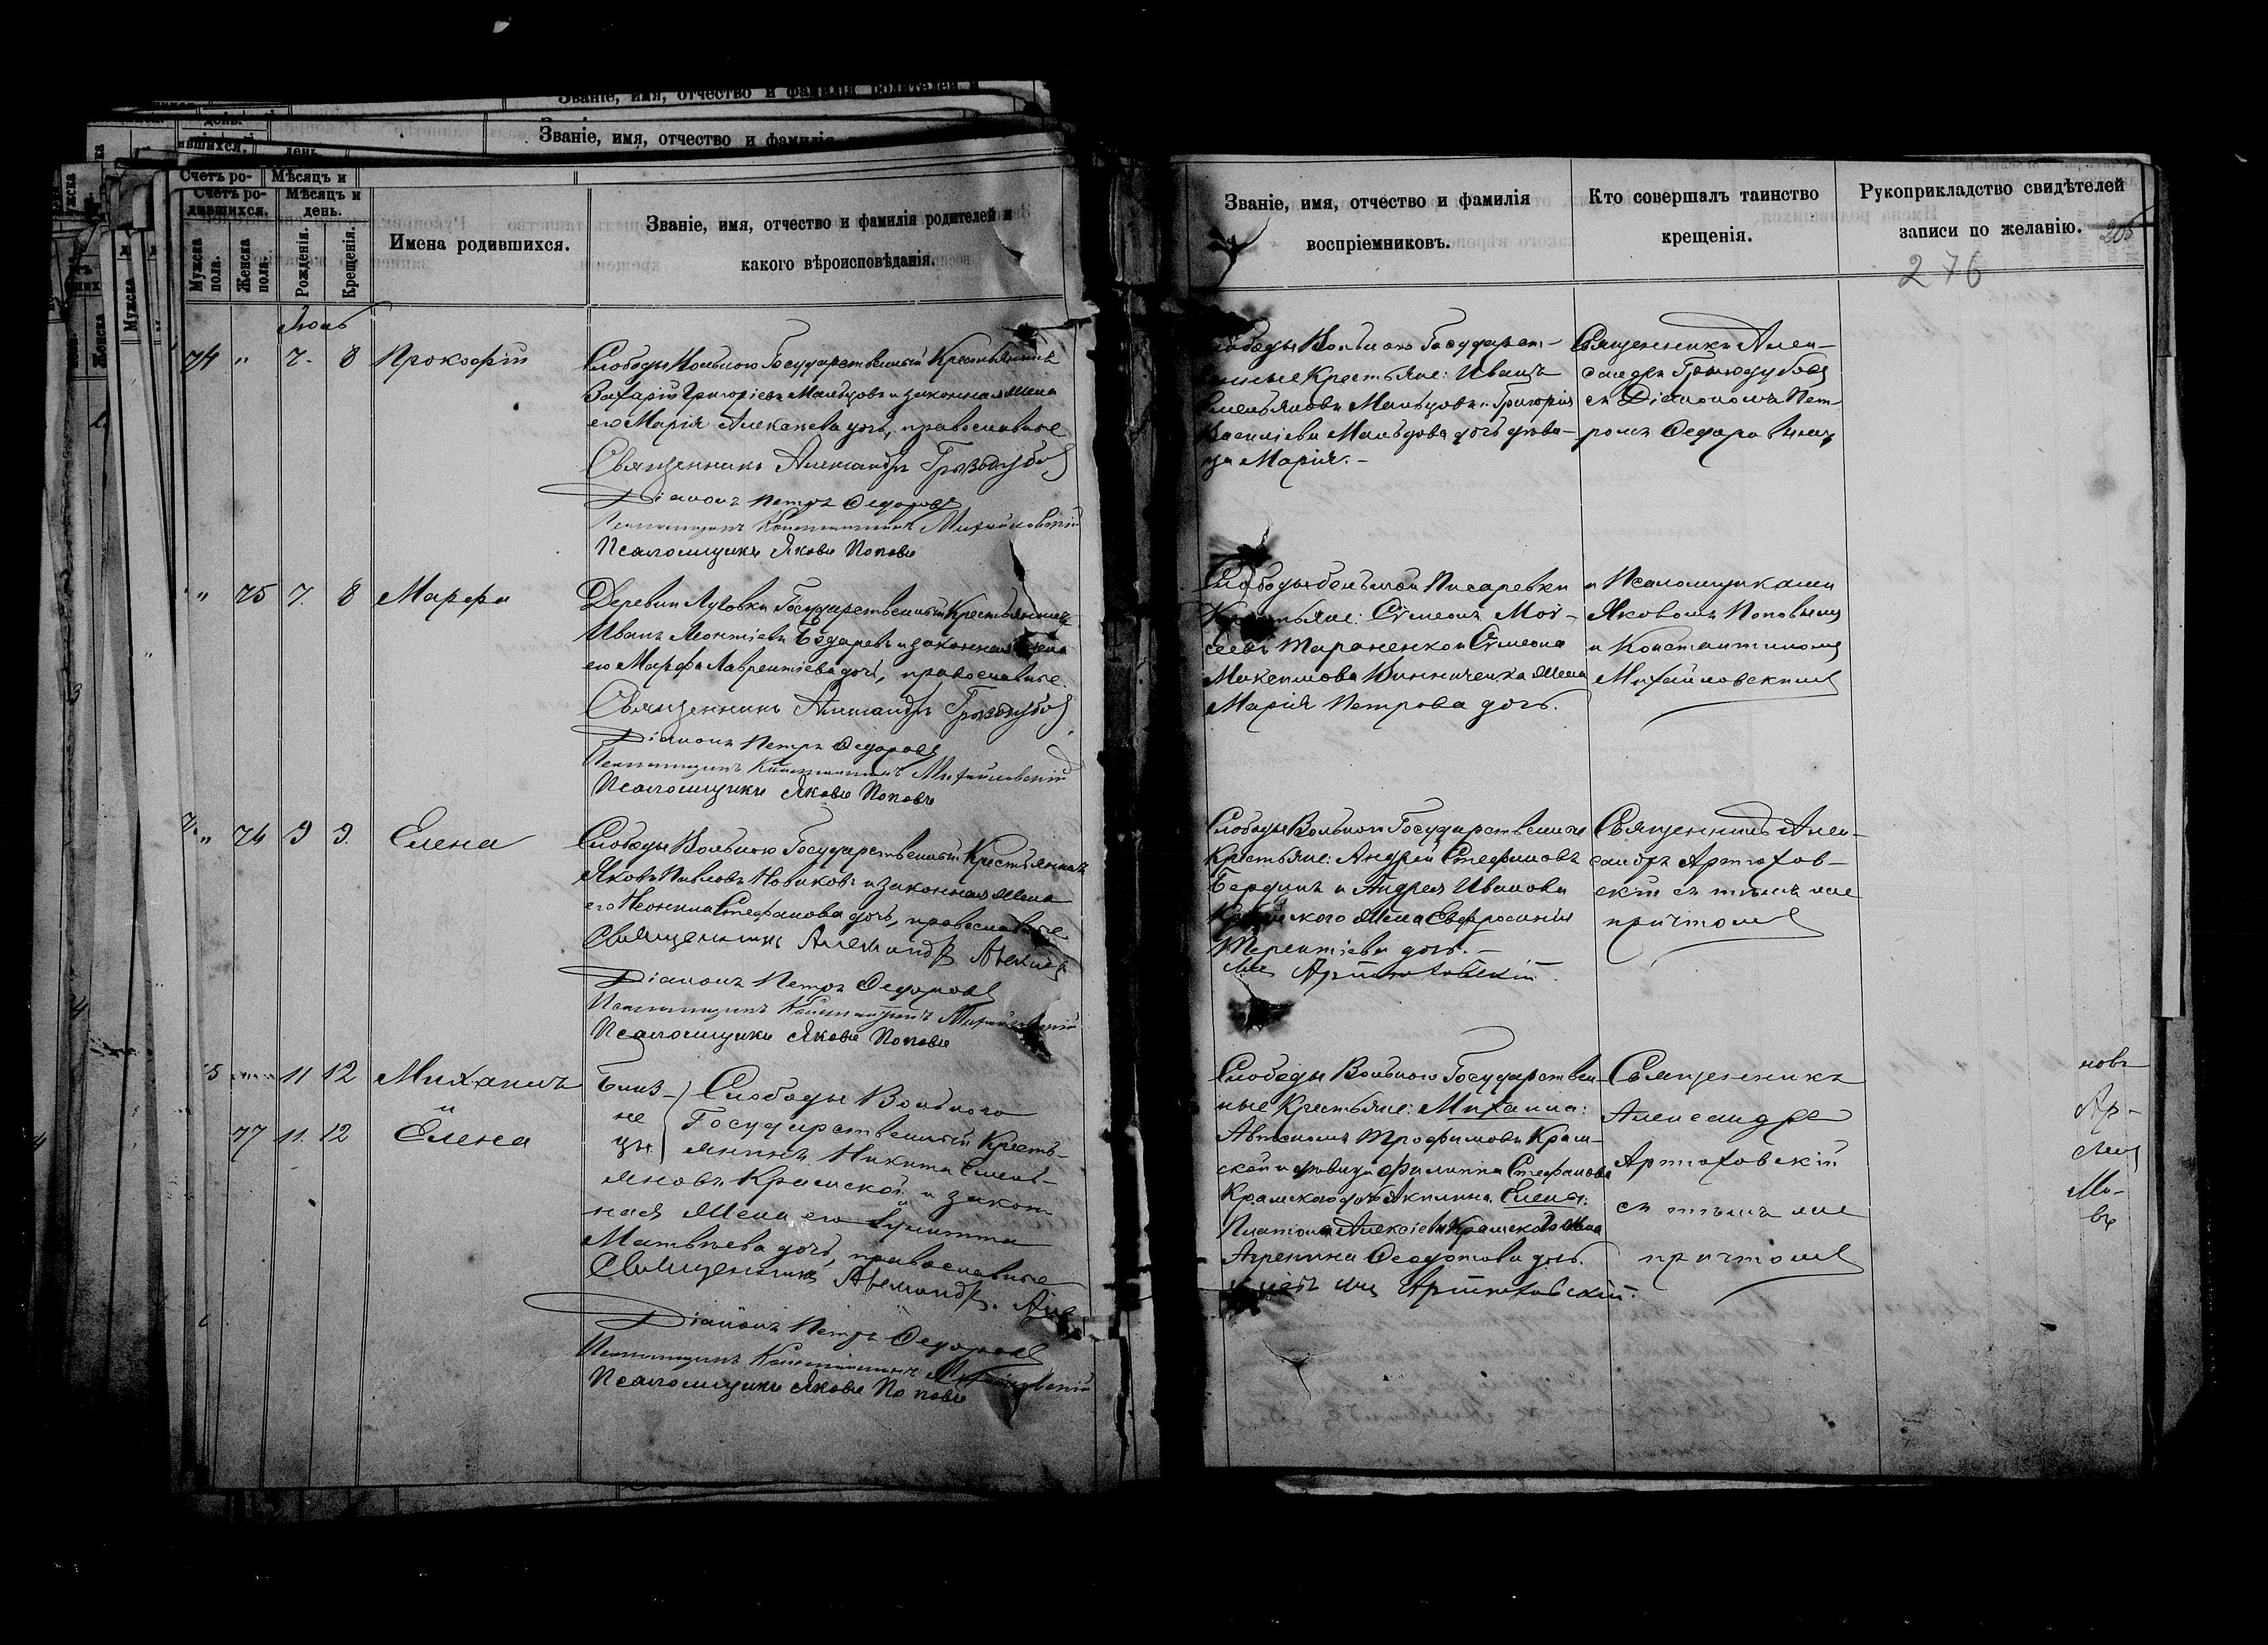 Званіе, имя, отчество и фамилія родителей и
Званіе, имя, отчество и фамилія
Счетъ ро- Мѣсяцъ и
Счетъ ро-
дившихся.
Мѣсяцъ и
день.
Мужска
пола.
Женска
пола.
Рожденія.
Крещенія.
Имена родившихся.
Званіе, имя, отчество и фамилія родителей и
какого вѣроисповѣданія.
Июль
74 " 7. 8 Прокофій
Слободы Вольного Государственный Крестьянинъ
Захарій Григоріевъ Мальцовъ и законная жена
его Марія Алексѣева дочь, православные
Священникъ Александръ Гризодубовъ
Діаконъ Петръ Федоровъ
Псаломщикъ Константинъ Михайловскій
Псаломщикъ Яковъ Поповъ
" 75 7. 8 Марфа
Деревни Луговки Государственный Крестьянинъ
Иванъ Леонтіевъ Бодаревъ и законная жена
его Марфа Лаврентіева дочь, православные.
Священникъ Александръ Гризодубовъ
Діаконъ Петръ Федоровъ
Псаломщикъ Константинъ Михайловскій
Псаломщикъ Яковъ Поповъ
" 76 9 9. Елена
Слободы Вольного Государственный Крестьянинъ
Яковъ Павловъ Новиковъ и законная жена
его Неонила Стефанова дочь, православные
Священникъ Александръ
Діаконъ Петръ Федоровъ
Псаломщикъ Константинъ Михайловскій
Псаломщикъ Яковъ Поповъ
75 11 12 Михаилъ
и
77 11. 12 Елена
Близ-
не
цы
Слободы Вольного
Государственный Кресть-
янинъ Никита Емель-
яновъ Крамской и закон
ная жена его
Матвѣева дочь, православные
Священникъ Александръ.
Діаконъ Петръ Федоровъ
Псаломщикъ Константинъ Михайловскій
Псаломщикъ Яковъ Поповъ
Званіе, имя, отчество и фамилія
воспріемниковъ.
Кто совершалъ таинство
крещенія.
Рукоприкладство свидѣтелей
записи по желанію.
205
276
Слободы Вольного Государст-
венные Крестьяне: Иванъ
Емельяновъ Мальцовъ и Григорія
Василіева Мальцова дочь дѣви-
ца Марія.-
Священникъ Алек-
сандръ Гризодубовъ
съ Діакономъ Пет-
ромъ Федоровымъ
Слободы большой Писаревки
Крестьяне: Сѵмеонъ Мої-
сеевъ Тараненко и Сѵмеона
Микитова Винниченка жена
Марія Петрова дочь.
и Псаломщиками
Яковомъ Поповымъ
и Константиномъ
Михайловскимъ
Слободы Вольного Государственные
Крестьяне: Андрей Стефановъ
Бердинъ и Андрея Иванова
жена Евфросинія
Терентіева дочь.-
Артюховскій.
Священникъ Алек-
сандръ Артюхов-
скій съ тѣмъ же
причтомъ
Слободы Вольного Государствен-
ные Крестьяне: Михаила:
Автономъ Трофимовъ Крам-
ской и дѣвица Филиппа Стефанова
Крамского дочь Акилина Елены:
Платона Алексіева Крамского жена
Агрепина Феодотова дочь.
Артюховскій.
Священникъ
Александръ
Артюховскій
съ тѣмъ же
причтомъ
новъ
Ар-
Ми-